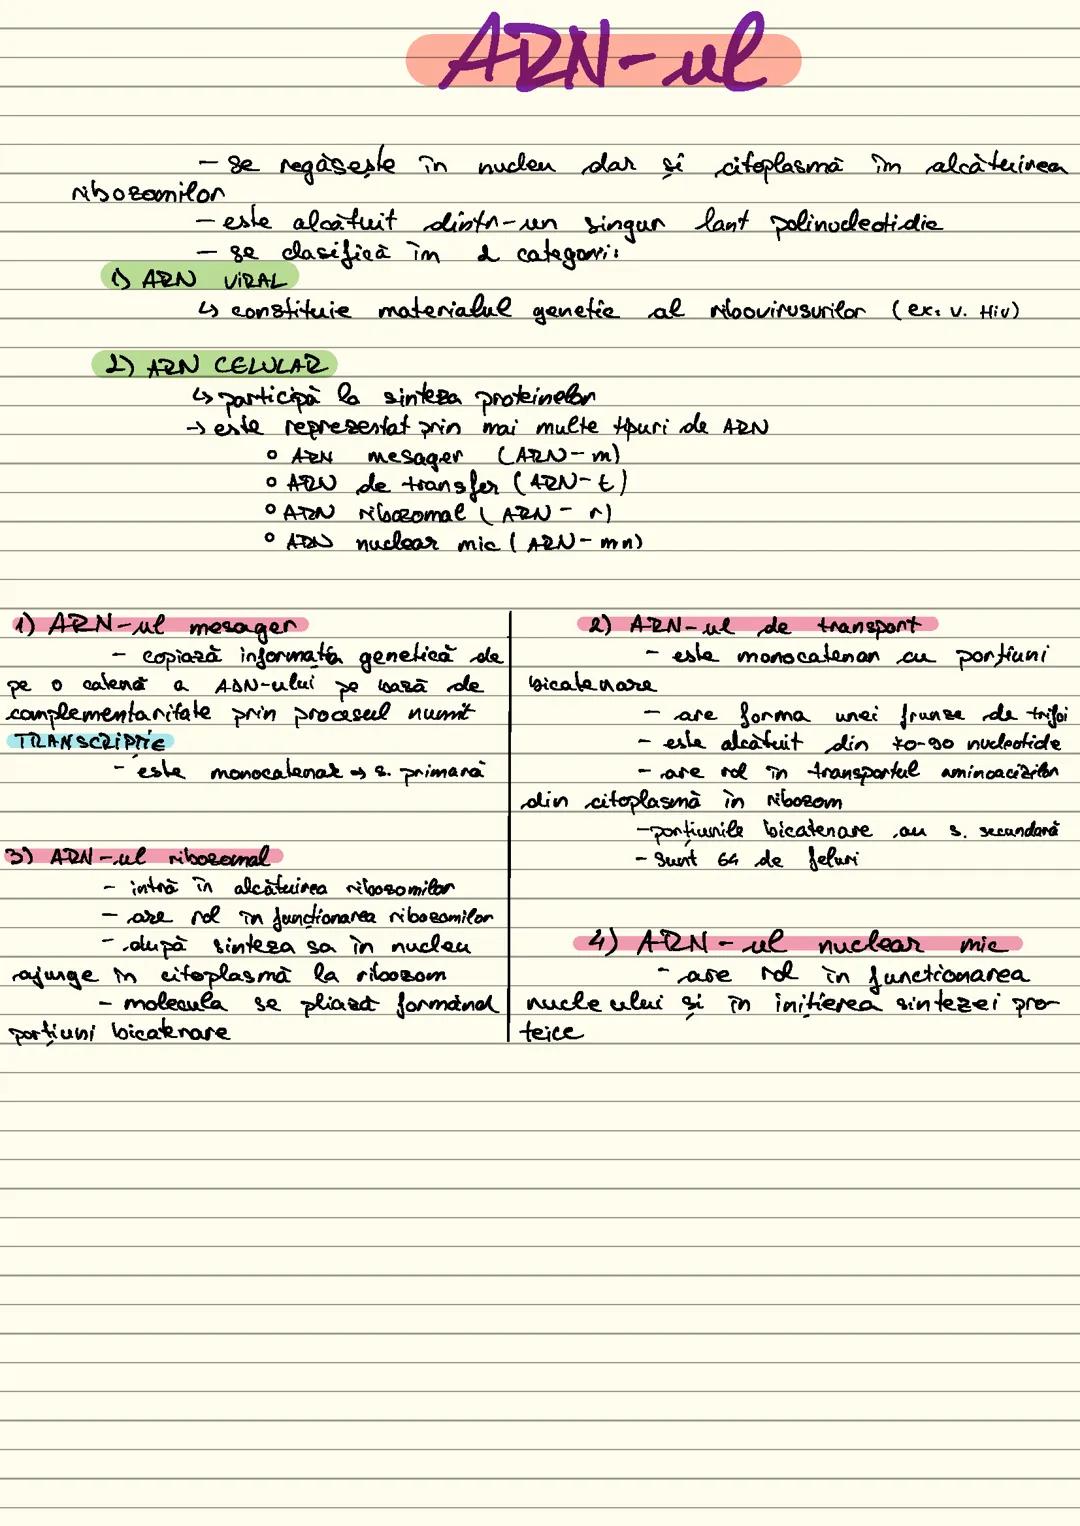 ARN-ul
- se regăsește în nucleu dar și citoplasmă în alcătuirea
ribozomilor
- este alcătuit dintr-un singur lant polinucleotidic
- se clasifică în 2 categorii:
1) ARN VIRAL
↳ constituie materialul genetic al ribovirusurilor (ex: v. Hiv)
2) ARN CELULAR
↳ participă la sinteza proteinelor
→ este reprezentat prin mai multe tipuri de ARN
° ARN mesager (ARN-m)
° ARN de transfer (ARN-t)
° ARN ribozomal (ARN-r)
° ARN nuclear mic (ARN-mn)
1) ARN-ul mesager
- copiază informația genetică de
pe o catenă a ADN-ului pe bază de
complementaritate prin procesul numit
TRANSCRIPȚIE
- este monocatenar → s. primară
3) ARN-ul ribozomal
- intră în alcătuirea ribozomilor
- are rol în funcționarea ribozomilor
- după sinteza sa în nucleu
ajunge în citoplasmă la ribozom
- molecula se pliază formând
porțiuni bicatenare
2) ARN-ul de transport
- este monocatenar cu porțiuni
bicatenare
- are forma unei frunze de trifoi
- este alcătuit din 70-90 nucleotide
- are rol în transportul aminoacizilor
din citoplasmă în ribozom
- porțiunile bicatenare au s. secundară
- Sunt 64 de feluri
4) ARN-ul nuclear mic
- are rol în functionarea
nucleului și în inițierea sintezei pro-
teice